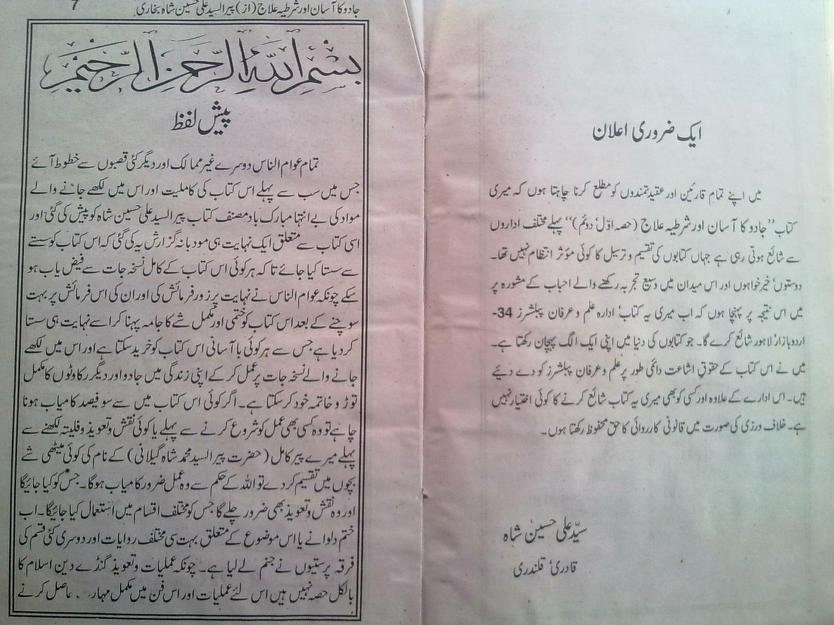 ایک ضروری اعلان
میں اپنے تمام قارئین اور عقیدتمندوں کو مطلع کرنا چاہتا ہوں کہ میری
کتاب ''جادو کا آسان اور شرطیہ علاج (حصہ اوّل' دوئم)'' پہلے مختلف اداروں
سے شائع ہوتی رہی ہے جہاں کتابوں کی تقسیم و ترسیل کا کوئی مؤثر انتظام نہیں تھا۔
دوستوں' خیرخواہوں اور اس میدان میں وسیع تجربہ رکھنے والے احباب کے مشورہ پر
میں اس نتیجہ پر پہنچا ہوں کہ اب میری یہ کتاب' ادارہ علم و عرفان پبلشرز 34-
اردو بازار' لاہور شائع کرے گا۔ جو کتابوں کی دنیا میں اپنی ایک الگ پہچان رکھتا ہے۔
میں نے اس کتاب کے حقوقِ اشاعت دائمی طور پر علم و عرفان پبلشرز کو دے دیئے
ہیں۔ اس ادارے کے علاوہ اور کسی کو بھی میری یہ کتاب شائع کرنے کا کوئی اختیار نہیں
ہے۔ خلاف ورزی کی صورت میں قانونی کارروائی کا حق محفوظ رکھتا ہوں۔
سیّد علی حسین شاہ
قادری' قلندری
جادو کا آسان اور شرطیہ علاج (از) پیر السید علی حسین شاہ بخاری 7
بسم الله الرحمن الرحيم
پیش لفظ
تمام عوام الناس دوسرے غیر ممالک اور دیگر کئی قصبوں سے خطوط آئے
جس میں سب سے پہلے اس کتاب کی کاملیت اور اس میں لکھے جانے والے
مواد کی بے انتہا مبارک باد مصنف کتاب پیر السید علی حسین شاہ کو پیش کی گئی اور
اسی کتاب سے متعلق ایک نہایت ہی مودبانہ گزارش یہ کی گئی کہ اس کتاب کو سستے
سے سستا کیا جائے تاکہ ہر کوئی اس کتاب کے کامل نسخہ جات سے فیض یاب ہو
سکے چونکہ عوام الناس نے نہایت پر زور فرمائش کی اور ان کی اس فرمائش پر بہت
سوچنے کے بعد اس کتاب کو ختمی اور مکمل شے کا جامہ پہنا کر اسے نہایت ہی سستا
کر دیا ہے جس سے ہر کوئی با آسانی اس کتاب کو خرید سکتا ہے اور اس میں لکھے
جانے والے نسخہ جات پر عمل کر کے اپنی زندگی میں جادو اور دیگر رکاوٹوں کا مکمل
توڑ و خاتمہ خود کر سکتا ہے۔ اگر کوئی اس کتاب میں سے سو فیصد کامیاب ہونا
چاہے تو وہ کسی بھی عمل کو شروع کرنے سے پہلے یا کوئی نقش و تعویذ و فلیتہ لکھنے سے
پہلے میرے پیر کامل (حضرت پیر السید محمد شاہ گیلانی) کے نام کی کوئی میٹھی شے
بچوں میں تقسیم کر دے تو اللہ کے حکم سے وہ عمل ضرور کامیاب ہوگا۔ جس کو کیا جائیگا
اور وہ نقش و تعویذ بھی ضرور چلے گا جس کو مختلف اقسام میں استعمال کیا جائیگا۔ اب
ختم دلوانے یا اس موضوع کے متعلق بہت سی مختلف روایات اور دوسری کئی قسم کی
فرقہ پرستیوں نے جنم لے لیا ہے۔ چونکہ عملیات و تعویذ گنڈے دین اسلام کا
بالکل حصہ نہیں ہیں اس لئے عملیات اور اس فن میں مکمل حاصل کرنے